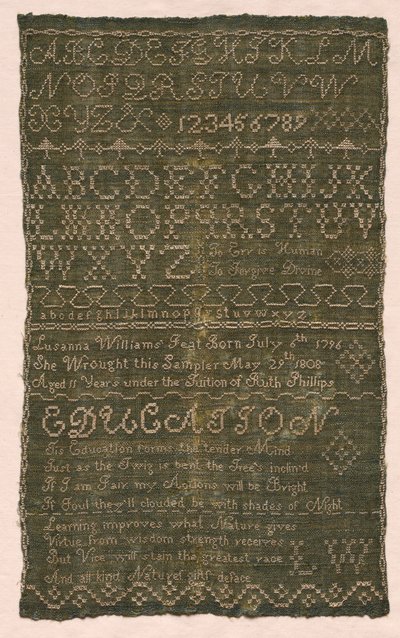 ABCDEFGHIKLM
NOPQRSTUVW
XYZ& 123456789
ABCDEFGHIJK
LMNOPQRSTUV
WXYZ
To Err is Human
To Forgive Divine
abcdefghijklmnopqrstuvwxyz
Lusanna Williams Feat Born July 6th 1796
She Wrought this Sampler May 29th 1808
Aged 11 Years under the Tuition of Ruth Phillips
EDUCATION
Tis Education forms the tender Mind
Just as the Twig is bent the Tree's inclin'd
If I am Fair my Actions will be Bright
If Foul they'll clouded be with shades of Night
Learning improves what Nature gives
Virtue from wisdom strength receives
But Vice will stain the greatest
And all kind Nature's gifts deface
L W